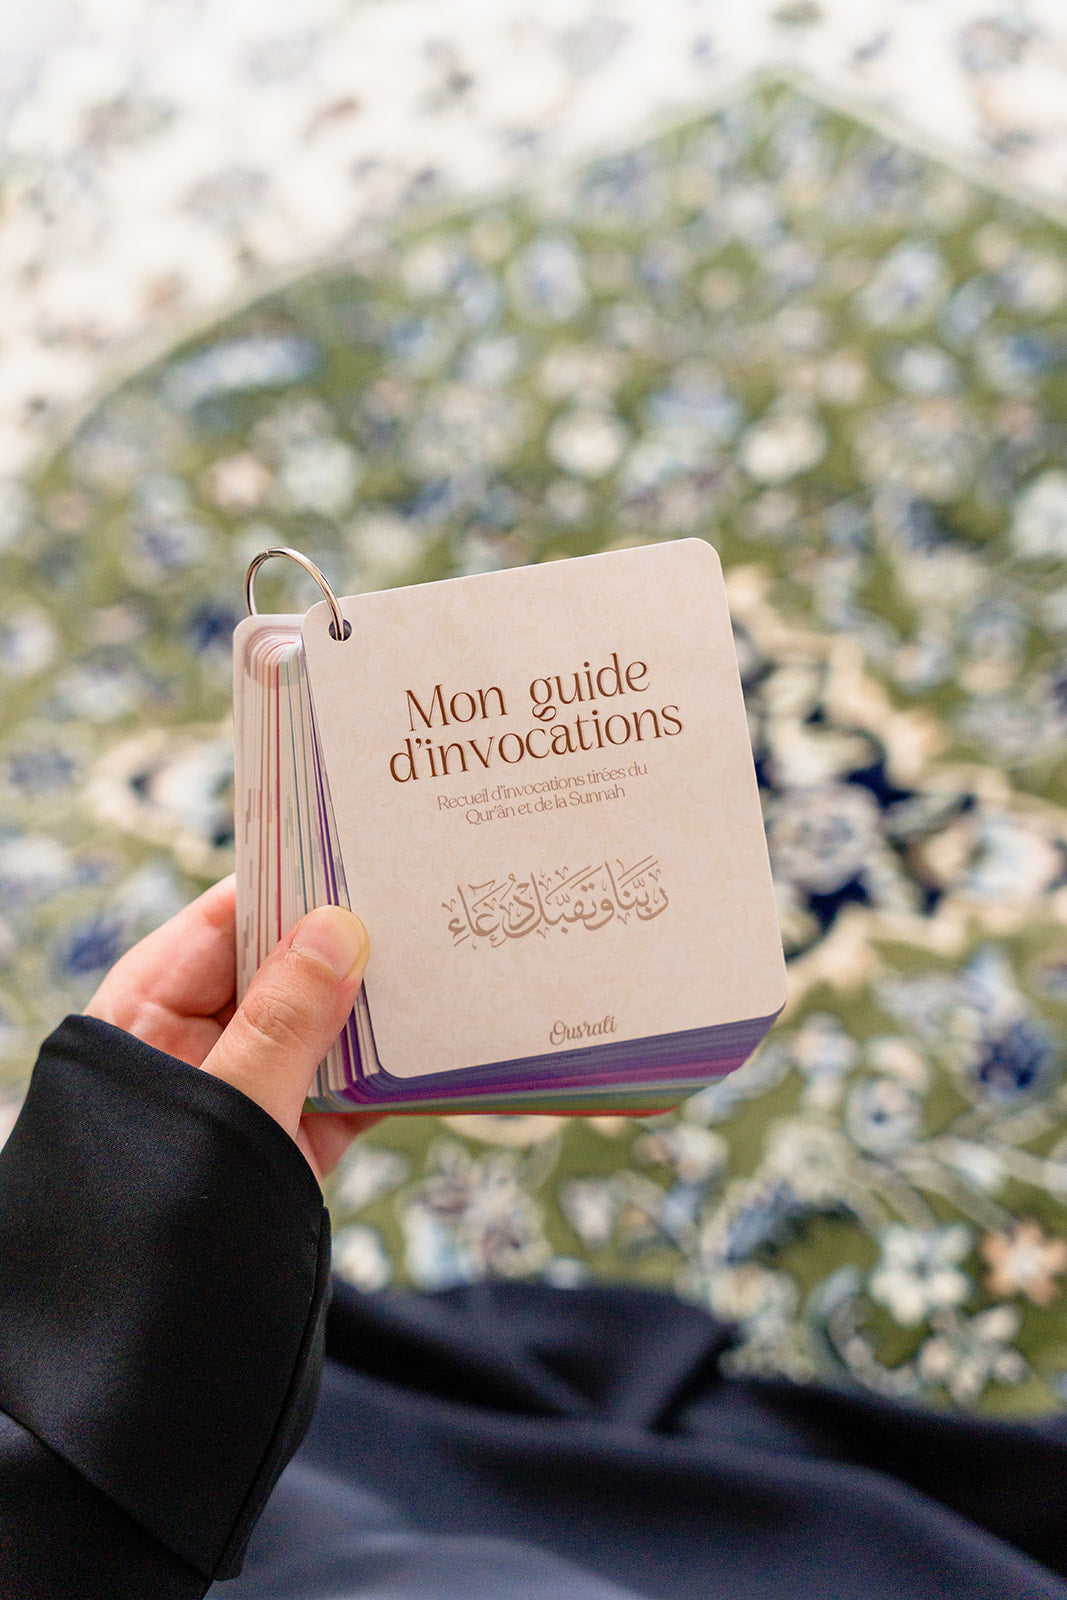 Mon guide
d'invocations
Recueil d'invocations tirées du
Qur'ân et de la Sunnah
رَبَّنَا وَتَقَبَّلْ دُعَاءِ
Ousrati